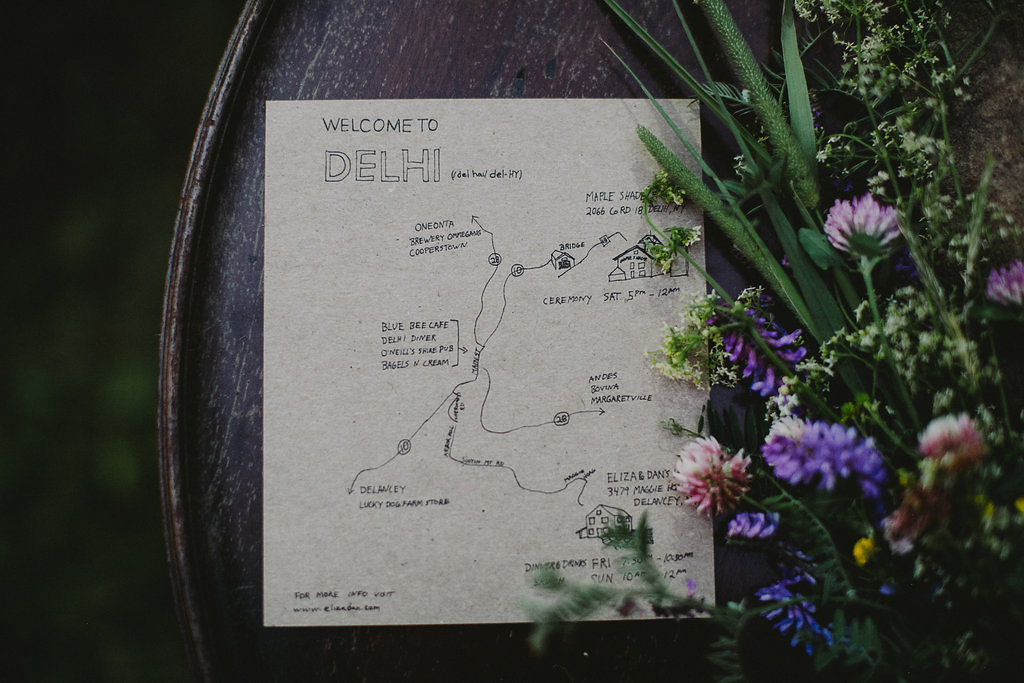 WELCOME TO
DELHI (/del hai/ del-HY)
MAPLE SHADE
2066 Co RD 18, DELHI, NY
ONEONTA
BREWERY OMMEGANG
COOPERSTOWN
28
10
BRIDGE
CEREMONY SAT. 5PM - 12AM
BLUE BEE CAFE
DELHI DINER
O'NEILL'S SHIRE PUB
BAGELS N CREAM
MAIN ST
ANDES
BOVINA
MARGARETVILLE
28
10
ARBOR HILL
RD
MT RD
MAGGIE
DELANCEY
LUCKY DOG FARM STORE
ELIZA & DAN'S
3479 MAGGIE
DELANCEY,
DINNER & DRINKS FRI 7:30PM - 10:30PM
SUN 10AM - 12PM
FOR MORE INFO VISIT
www.elizadan.com